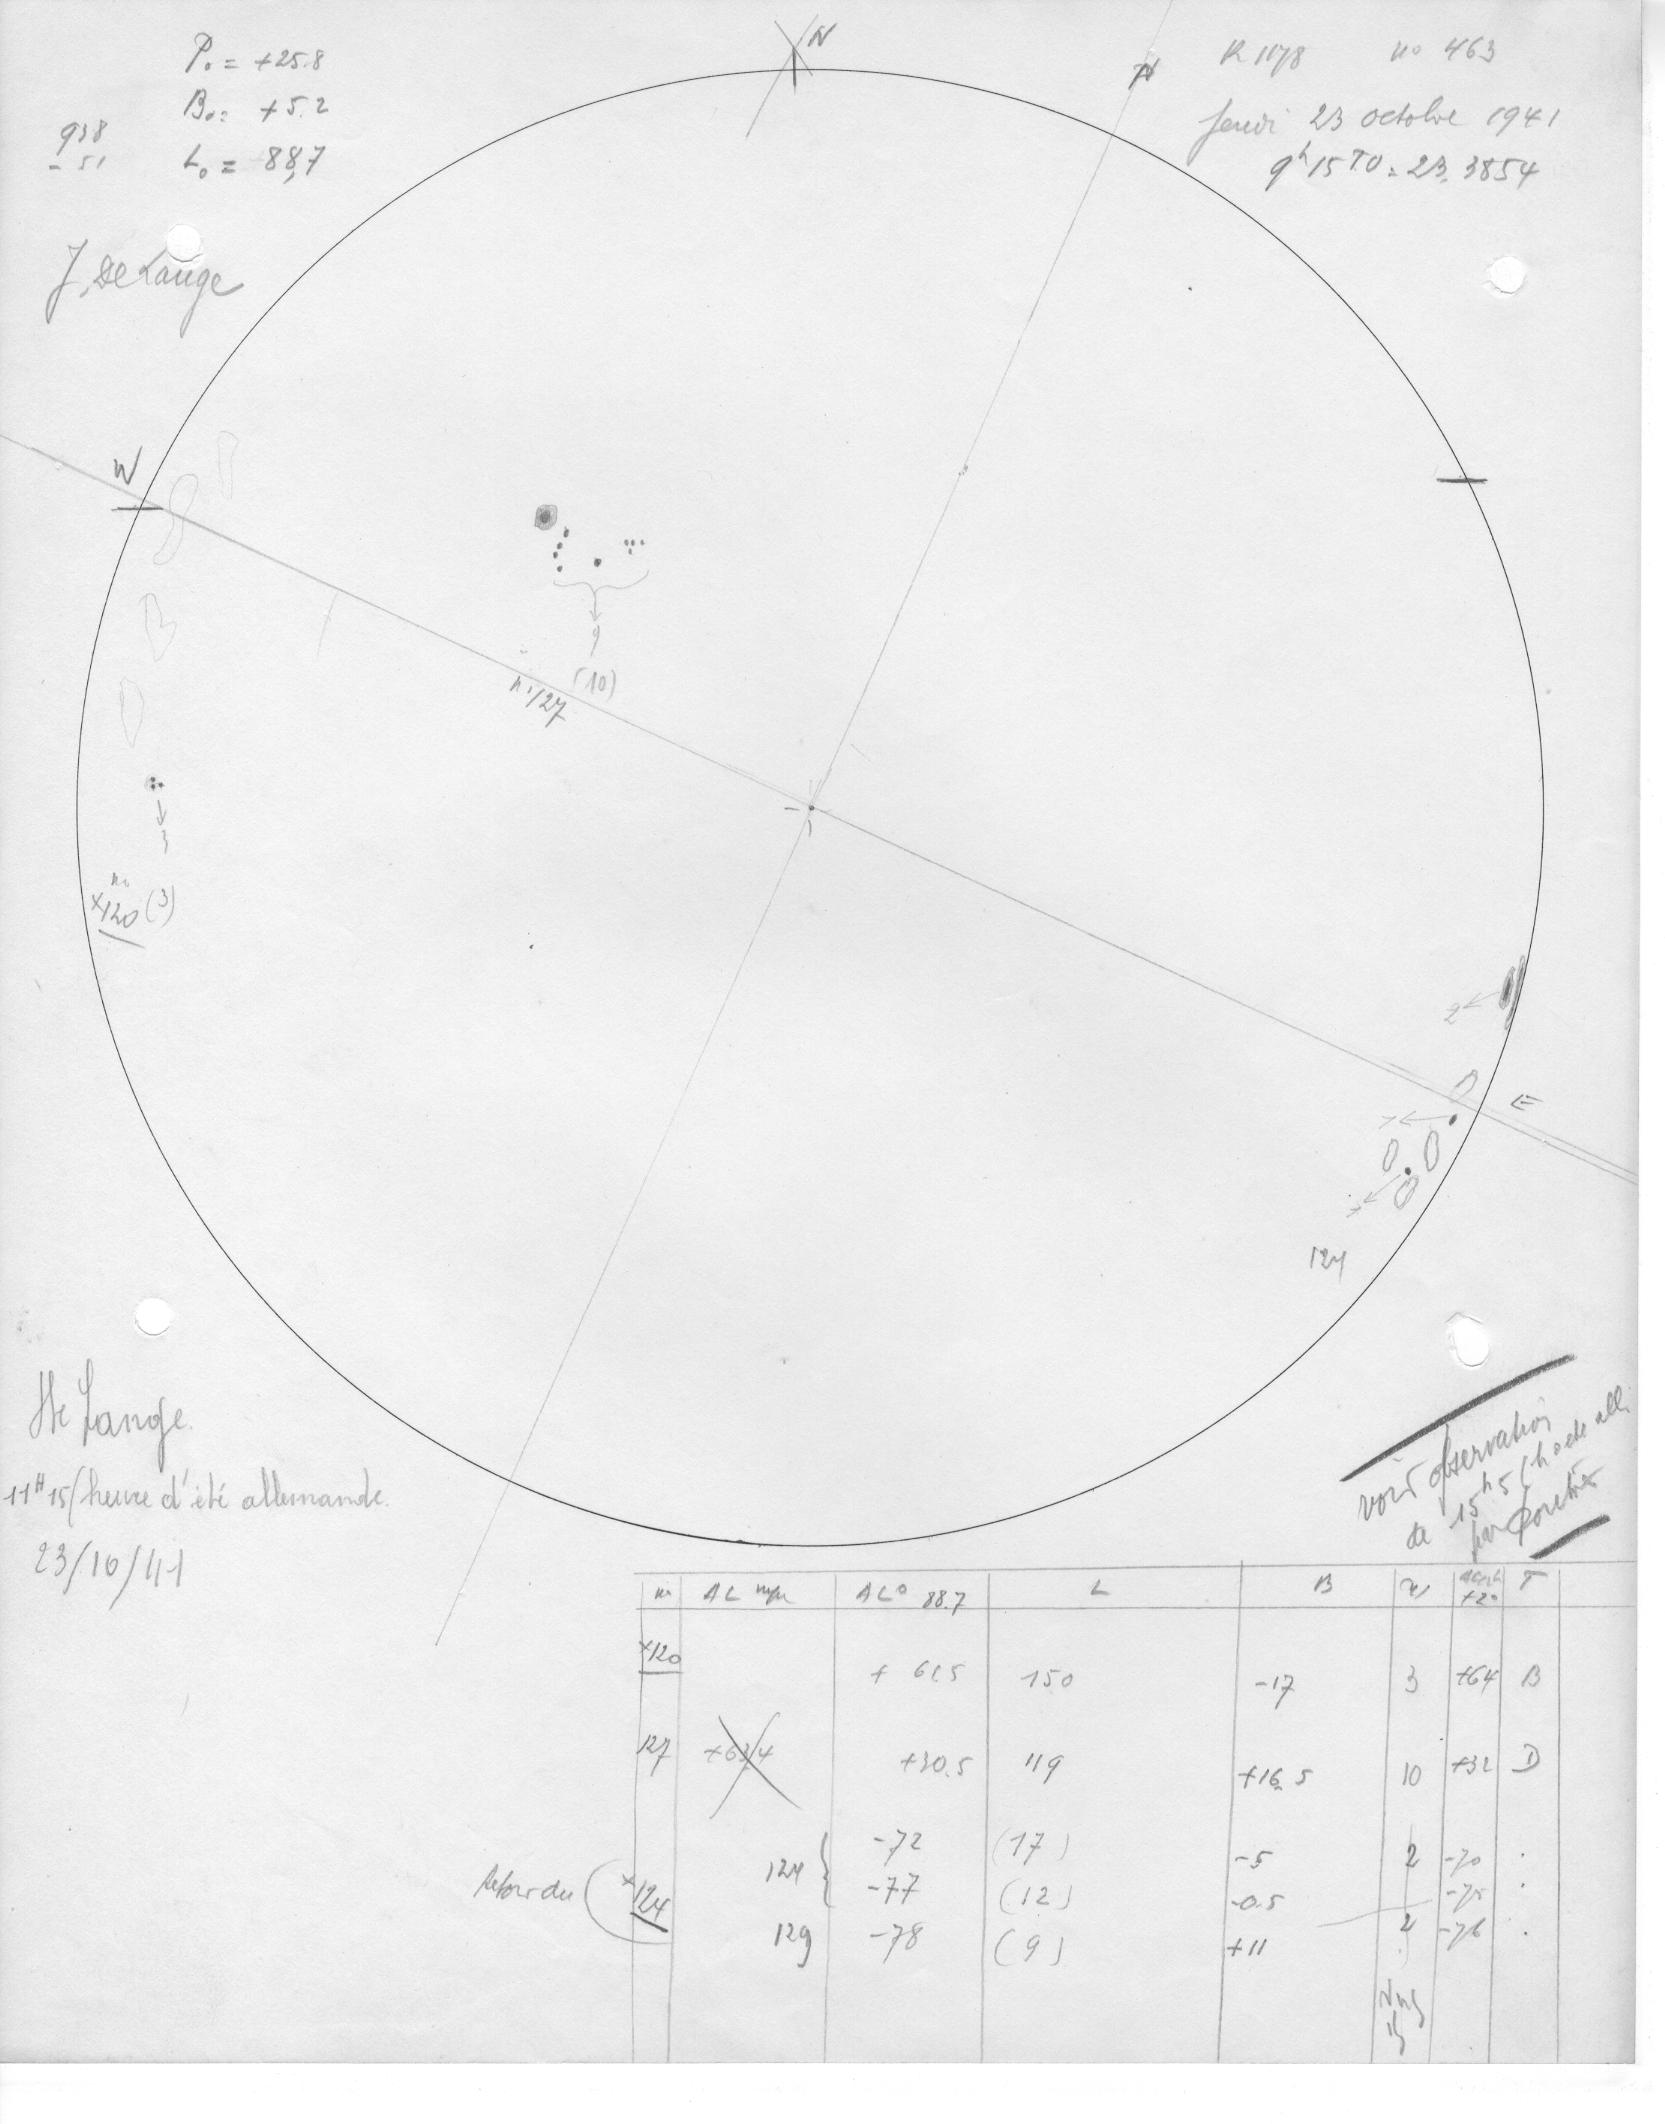 P. = +25.8
B₀ = +5.2
938
- 51
L₀ = 88,7
N
N
R 1178 no 463
Jeudi 23 octobre 1941
9h 15 T.U = 23.3854
J. De Lange
W
9
(10)
n° 127
3
no
×120 (3)
2
E
1
1
124
De Lange.
11H 15 (heure d'été allemande.
23/10/41
voir observation
de 15h5 (h. été all.
par
n° ΔL ΔL° 88.7 L B T
×120 + 61.5 150 -17 3 +64 B
127 +63/4 +30.5 119 +16.5 10 +32 D
124 { -72 (17) -5 2 -70 .
Retour du ( ×124 -77 (12) -0.5 -75 .
129 -78 (9) +11 2 -76 .